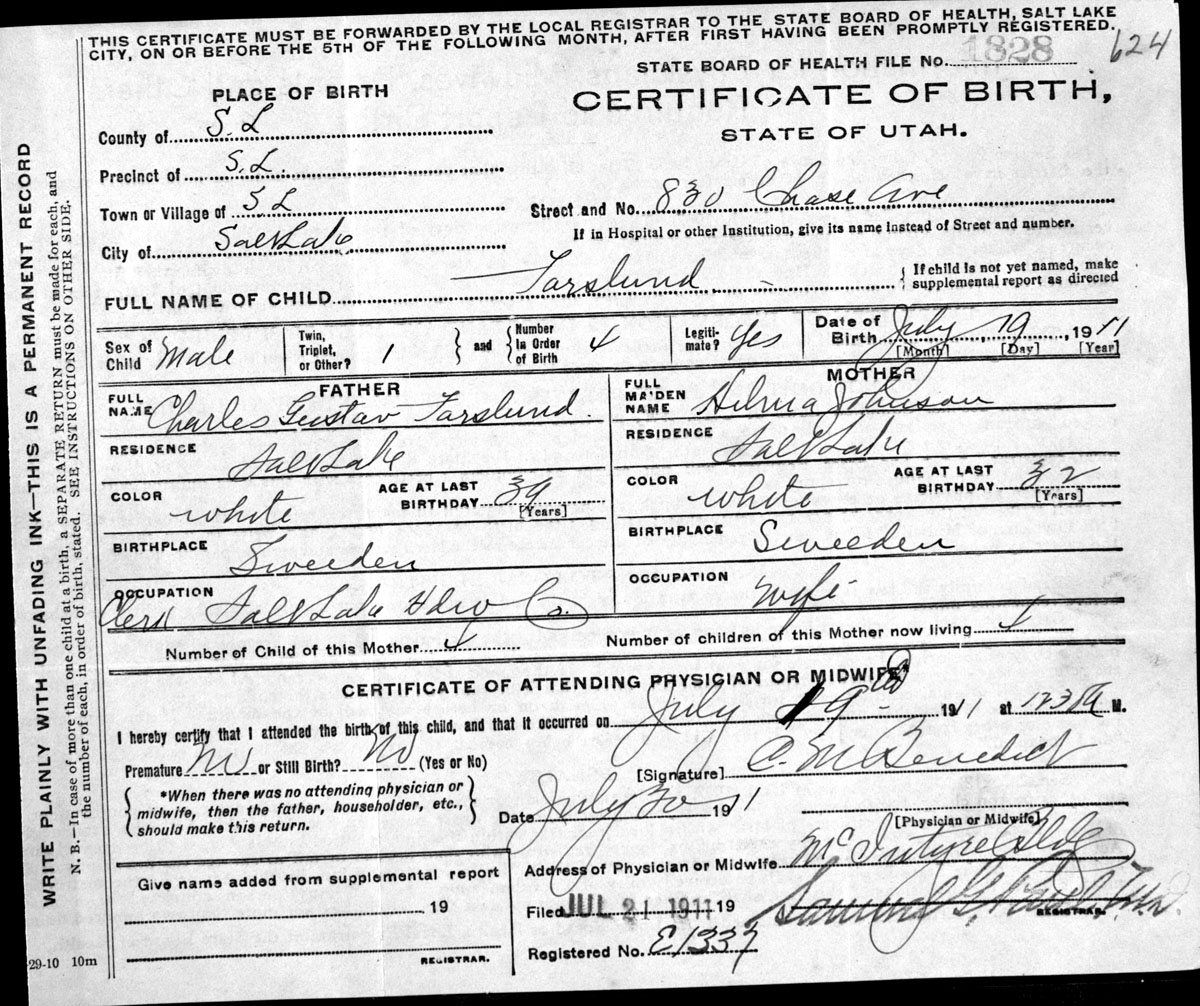 THIS CERTIFICATE MUST BE FORWARDED BY THE LOCAL REGISTRAR TO THE STATE BOARD OF HEALTH, SALT LAKE
CITY, ON OR BEFORE THE 5TH OF THE FOLLOWING MONTH, AFTER FIRST HAVING BEEN PROMPTLY REGISTERED.
624
STATE BOARD OF HEALTH FILE No. 1828
PLACE OF BIRTH
CERTIFICATE OF BIRTH,
STATE OF UTAH.
County of S. L
Precinct of S. L.
Town or Village of S. L
Street and No. 830 Chase Ave
If in Hospital or other Institution, give its name instead of Street and number.
City of Salt Lake
FULL NAME OF CHILD Farslund
If child is not yet named, make
supplemental report as directed
Sex of Child Male
Twin, Triplet, or Other? 1
and
Number in Order of Birth 4
Legiti-mate? Yes
Date of Birth July 19, 1911
[Month] [Day] [Year]
FATHER
FULL NAME Charles Gustav Farslund.
RESIDENCE Salt Lake
COLOR white
AGE AT LAST BIRTHDAY 39
[Years]
BIRTHPLACE Sweeden
OCCUPATION Clerk Salt Lake Hdw Co.
MOTHER
FULL MA'DEN NAME Hilma Johnson
RESIDENCE Salt Lake
COLOR white
AGE AT LAST BIRTHDAY 32
[Years]
BIRTHPLACE Sweeden
OCCUPATION wife
Number of Child of this Mother 4
Number of children of this Mother now living 4
CERTIFICATE OF ATTENDING PHYSICIAN OR MIDWIFE*
I hereby certify that I attended the birth of this child, and that it occurred on July 19 1911 at M.
Premature No or Still Birth? No (Yes or No)
[Signature] C. M Benedict
*When there was no attending physician or
midwife, then the father, householder, etc.,
should make this return.
Date July 20 1911
[Physician or Midwife]
Address of Physician or Midwife McIntyre Bldg
Give name added from supplemental report
19
REGISTRAR.
Filed JUL 21 1911 19
REGISTRAR.
Registered No. E1337
29-10 10m
WRITE PLAINLY WITH UNFADING INK—THIS IS A PERMANENT RECORD
N. B.—In case of more than one child at a birth, a SEPARATE RETURN must be made for each, and
the number of each, in order of birth, stated. SEE INSTRUCTIONS ON OTHER SIDE.